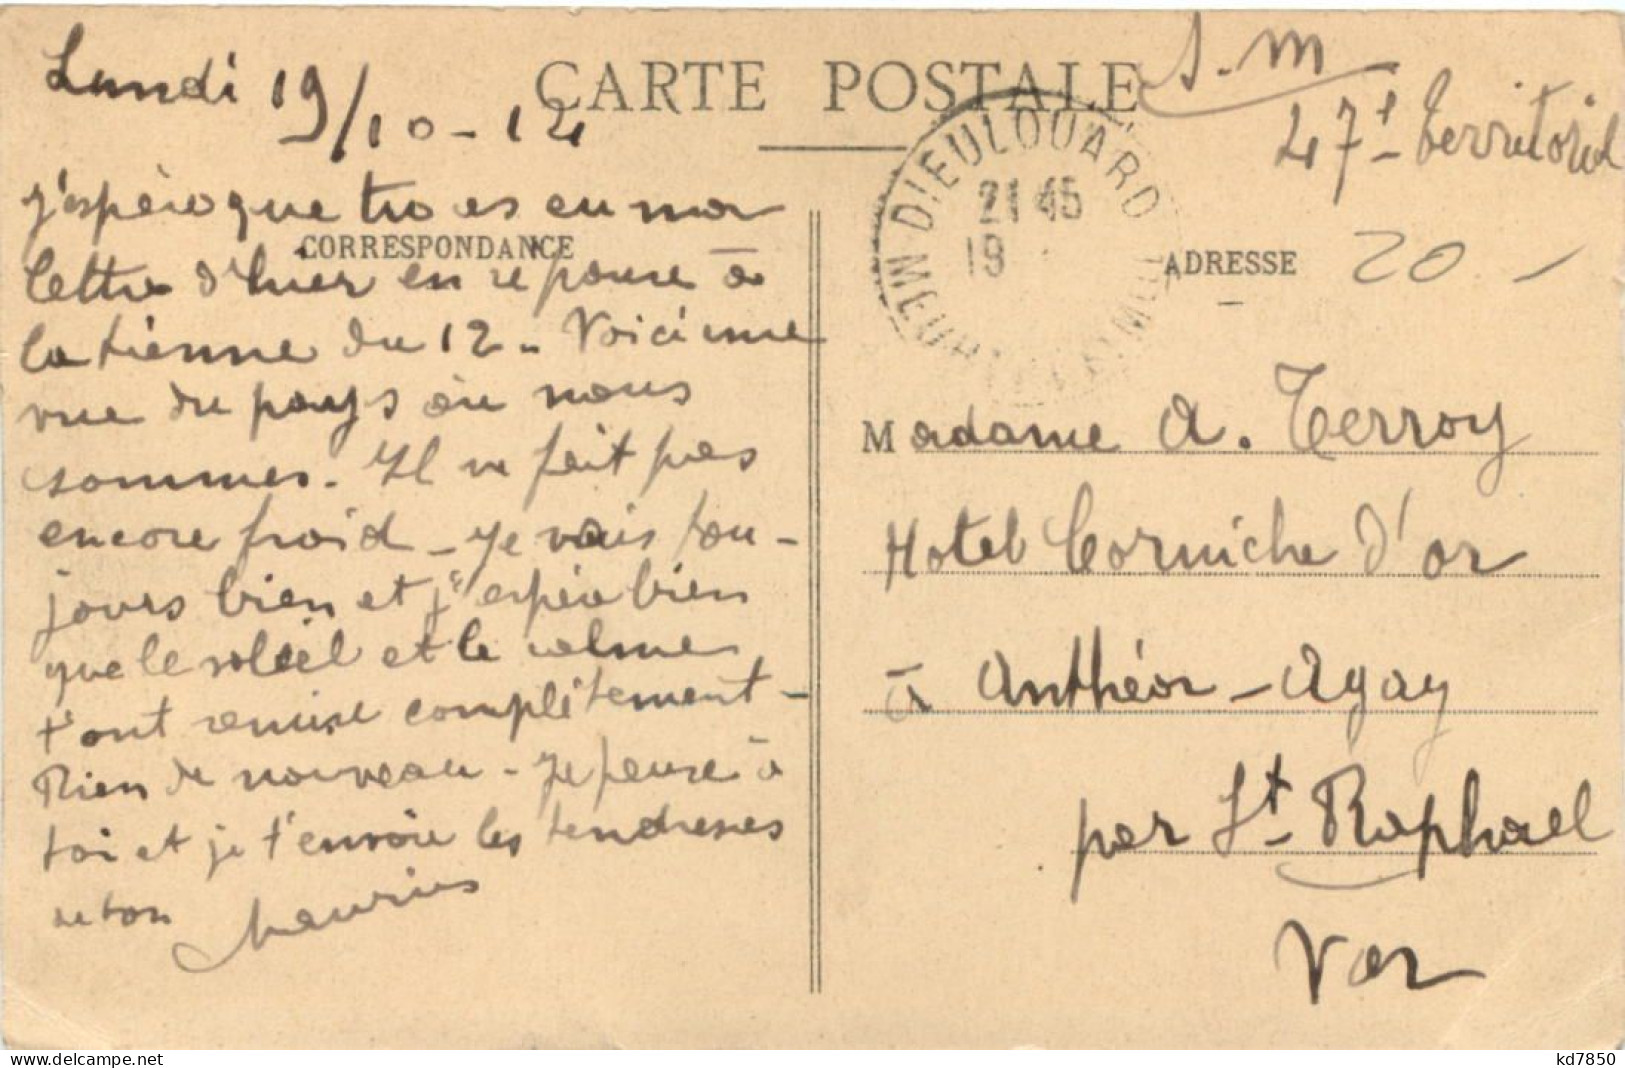 Lundi 19/10-14
CARTE POSTALE
S. M
47e Territorial
DIEULOUARD
21 45
19
MEURTHE
CORRESPONDANCE
ADRESSE
20 -
j'espère que tu as eu ma
lettre d'hier en réponse à
la tienne du 12 - Voici une
vue du pays où nous
sommes. Il ne fait pas
encore froid - Je vais tou-
jours bien et j'espère bien
que le soleil et le calme
t'ont remise complètement -
Rien de nouveau - Je pense à
toi et je t'envoie les tendresses
de ton Maurius
Madame A. Terroy
Hotel Corniche d'or
à Anthéor - Agay
par St. Raphael
Var
kd7850